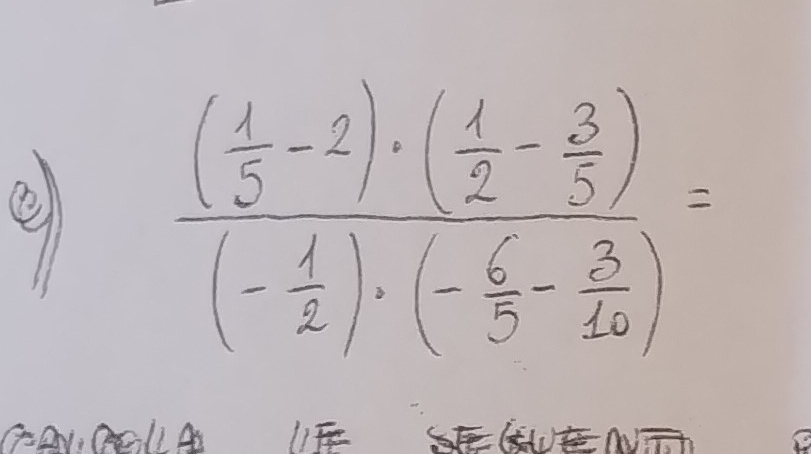 e) \frac{\left(\frac{1}{5} - 2\right) \cdot \left(\frac{1}{2} - \frac{3}{5}\right)}{\left(-\frac{1}{2}\right) \cdot \left(-\frac{6}{5} - \frac{3}{10}\right)} =
CALCOLA LE SEGUENTI